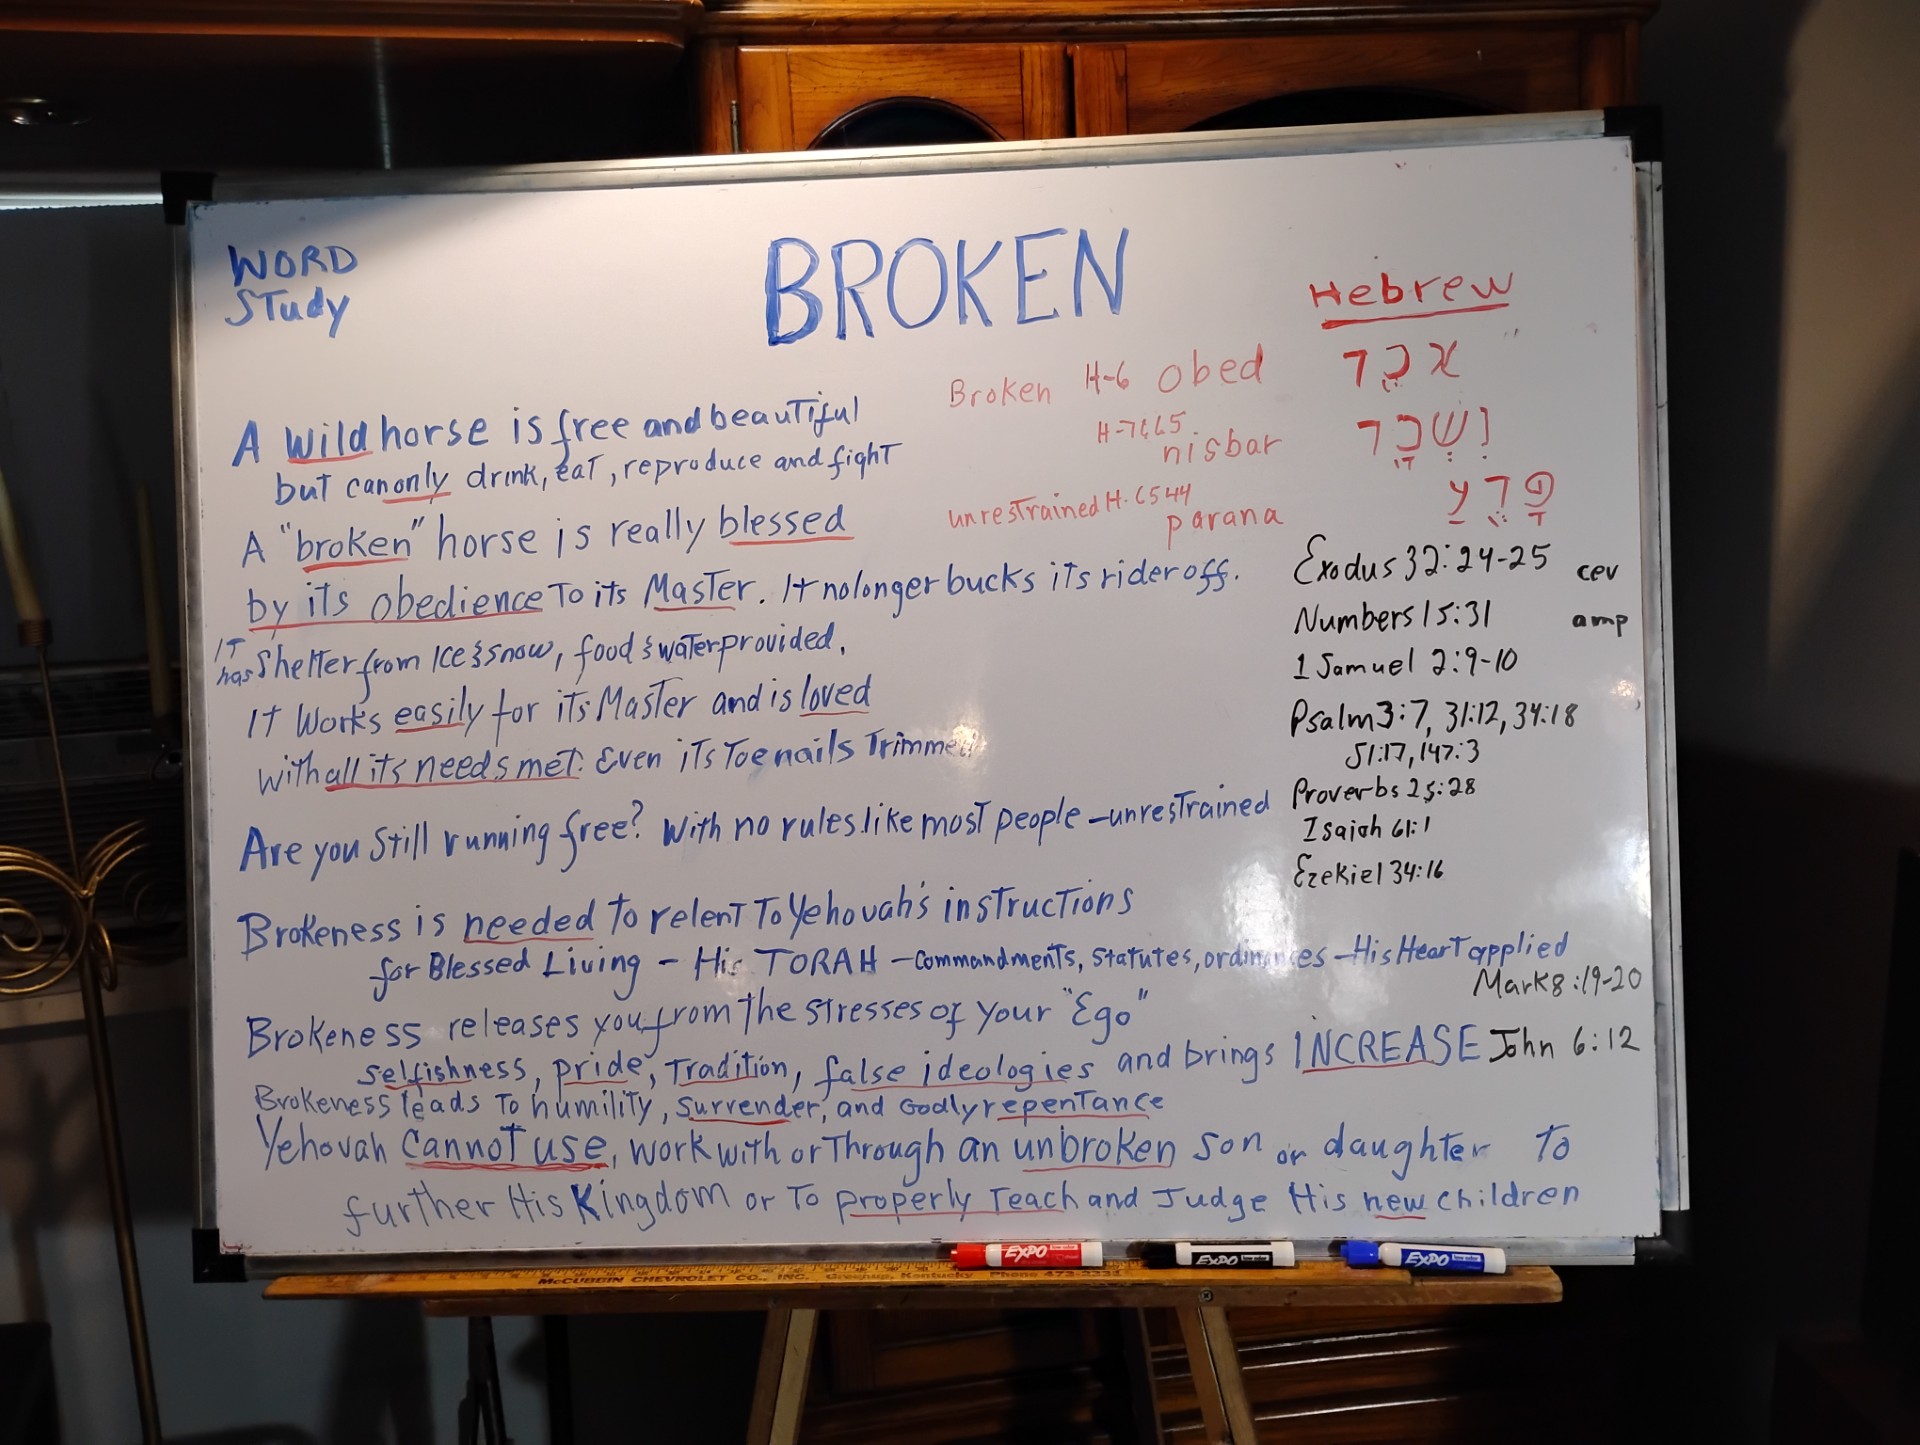 WORD
Study
BROKEN
Hebrew
Broken H-6 obed אבֵד
H-7665
nisbar נִשְׁבָּר
unrestrained H-6544
parana פָּרֻעַ
A wild horse is free and beautiful
but can only drink, eat, reproduce and fight
A "broken" horse is really blessed
by its obedience To its Master. It no longer bucks its rider off.
IT
has Shelter from Ice & snow, food & water provided.
IT Works easily for its Master and is loved
with all its needs met. Even iTs Toenails Trimmed
Are you Still running free? With no rules like most people - unresTrained
Brokeness is needed to relent To Yehovah's instructions
for Blessed Living - His TORAH - Commandments, Statutes, ordinances - His Heart applied
Brokeness releases you from the stresses of your "Ego"
selfishness, pride, Tradition, false ideologies and brings INCREASE
Brokeness leads To humility, surrender, and Godly repenTance
Yehovah CannoT use, work with or Through an unbroken son or daughter To
further His Kingdom or To properly Teach and Judge His new children
Exodus 32:24-25 cev
Numbers 15:31 amp
1 Samuel 2:9-10
Psalm 3:7, 31:12, 34:18
51:17, 147:3
Proverbs 25:28
Isaiah 61:1
Ezekiel 34:16
Mark 8:19-20
John 6:12
EXPO
EXPO
EXPO
McCUBBIN CHEVROLET CO., INC. Kentucky Phone